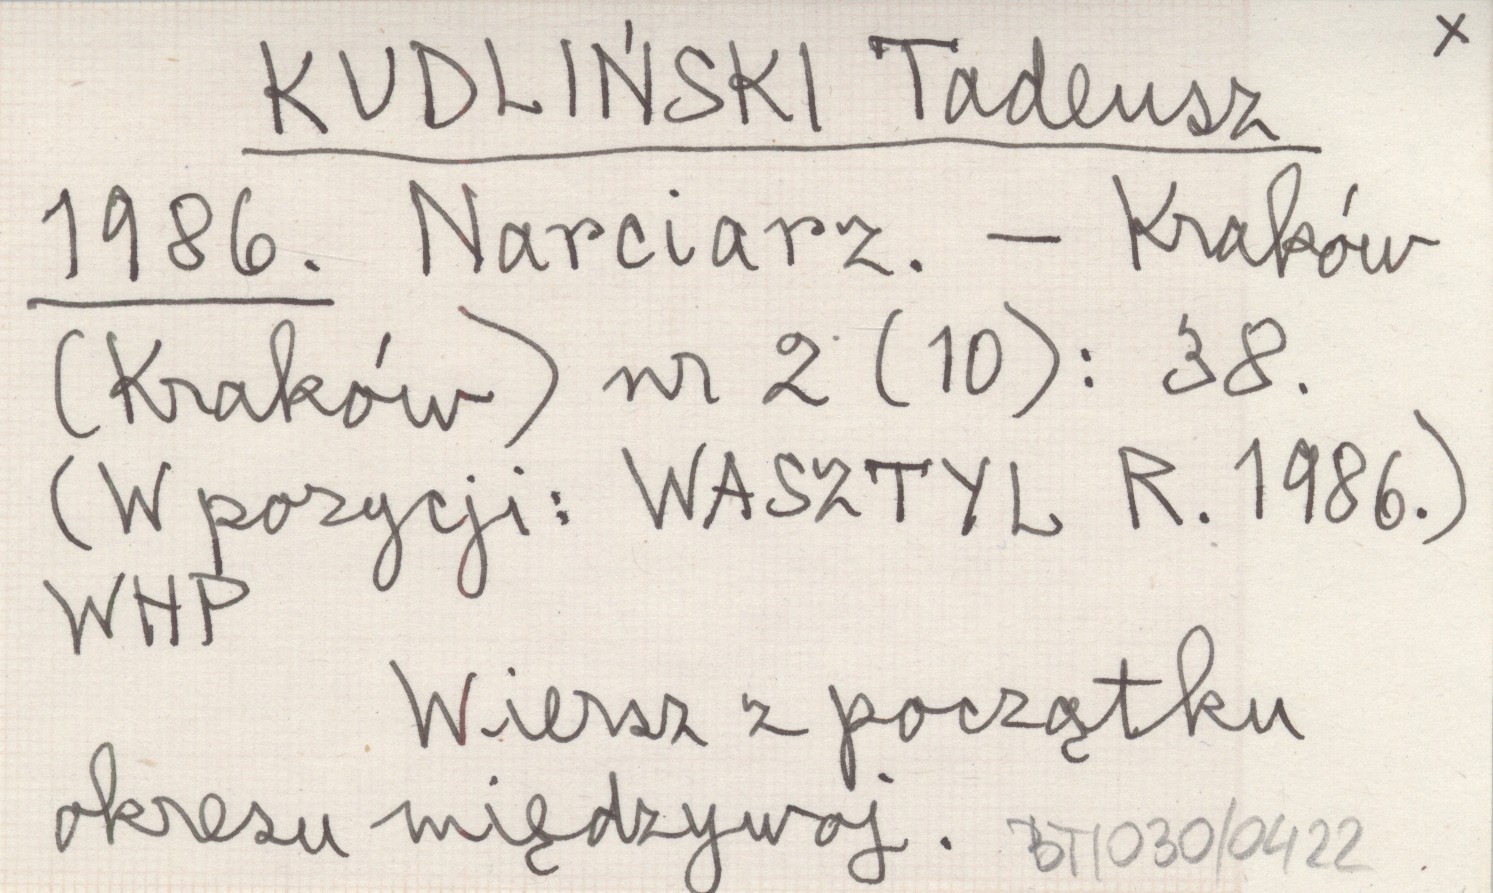 x
KUDLIŃSKI Tadeusz
1986. Narciarz. — Kraków
(Kraków) nr 2 (10): 38.
(W pozycji: WASZTYL R. 1986.)
WHP
Wiersz z początku
okresu międzywoj.
BT/030/0422